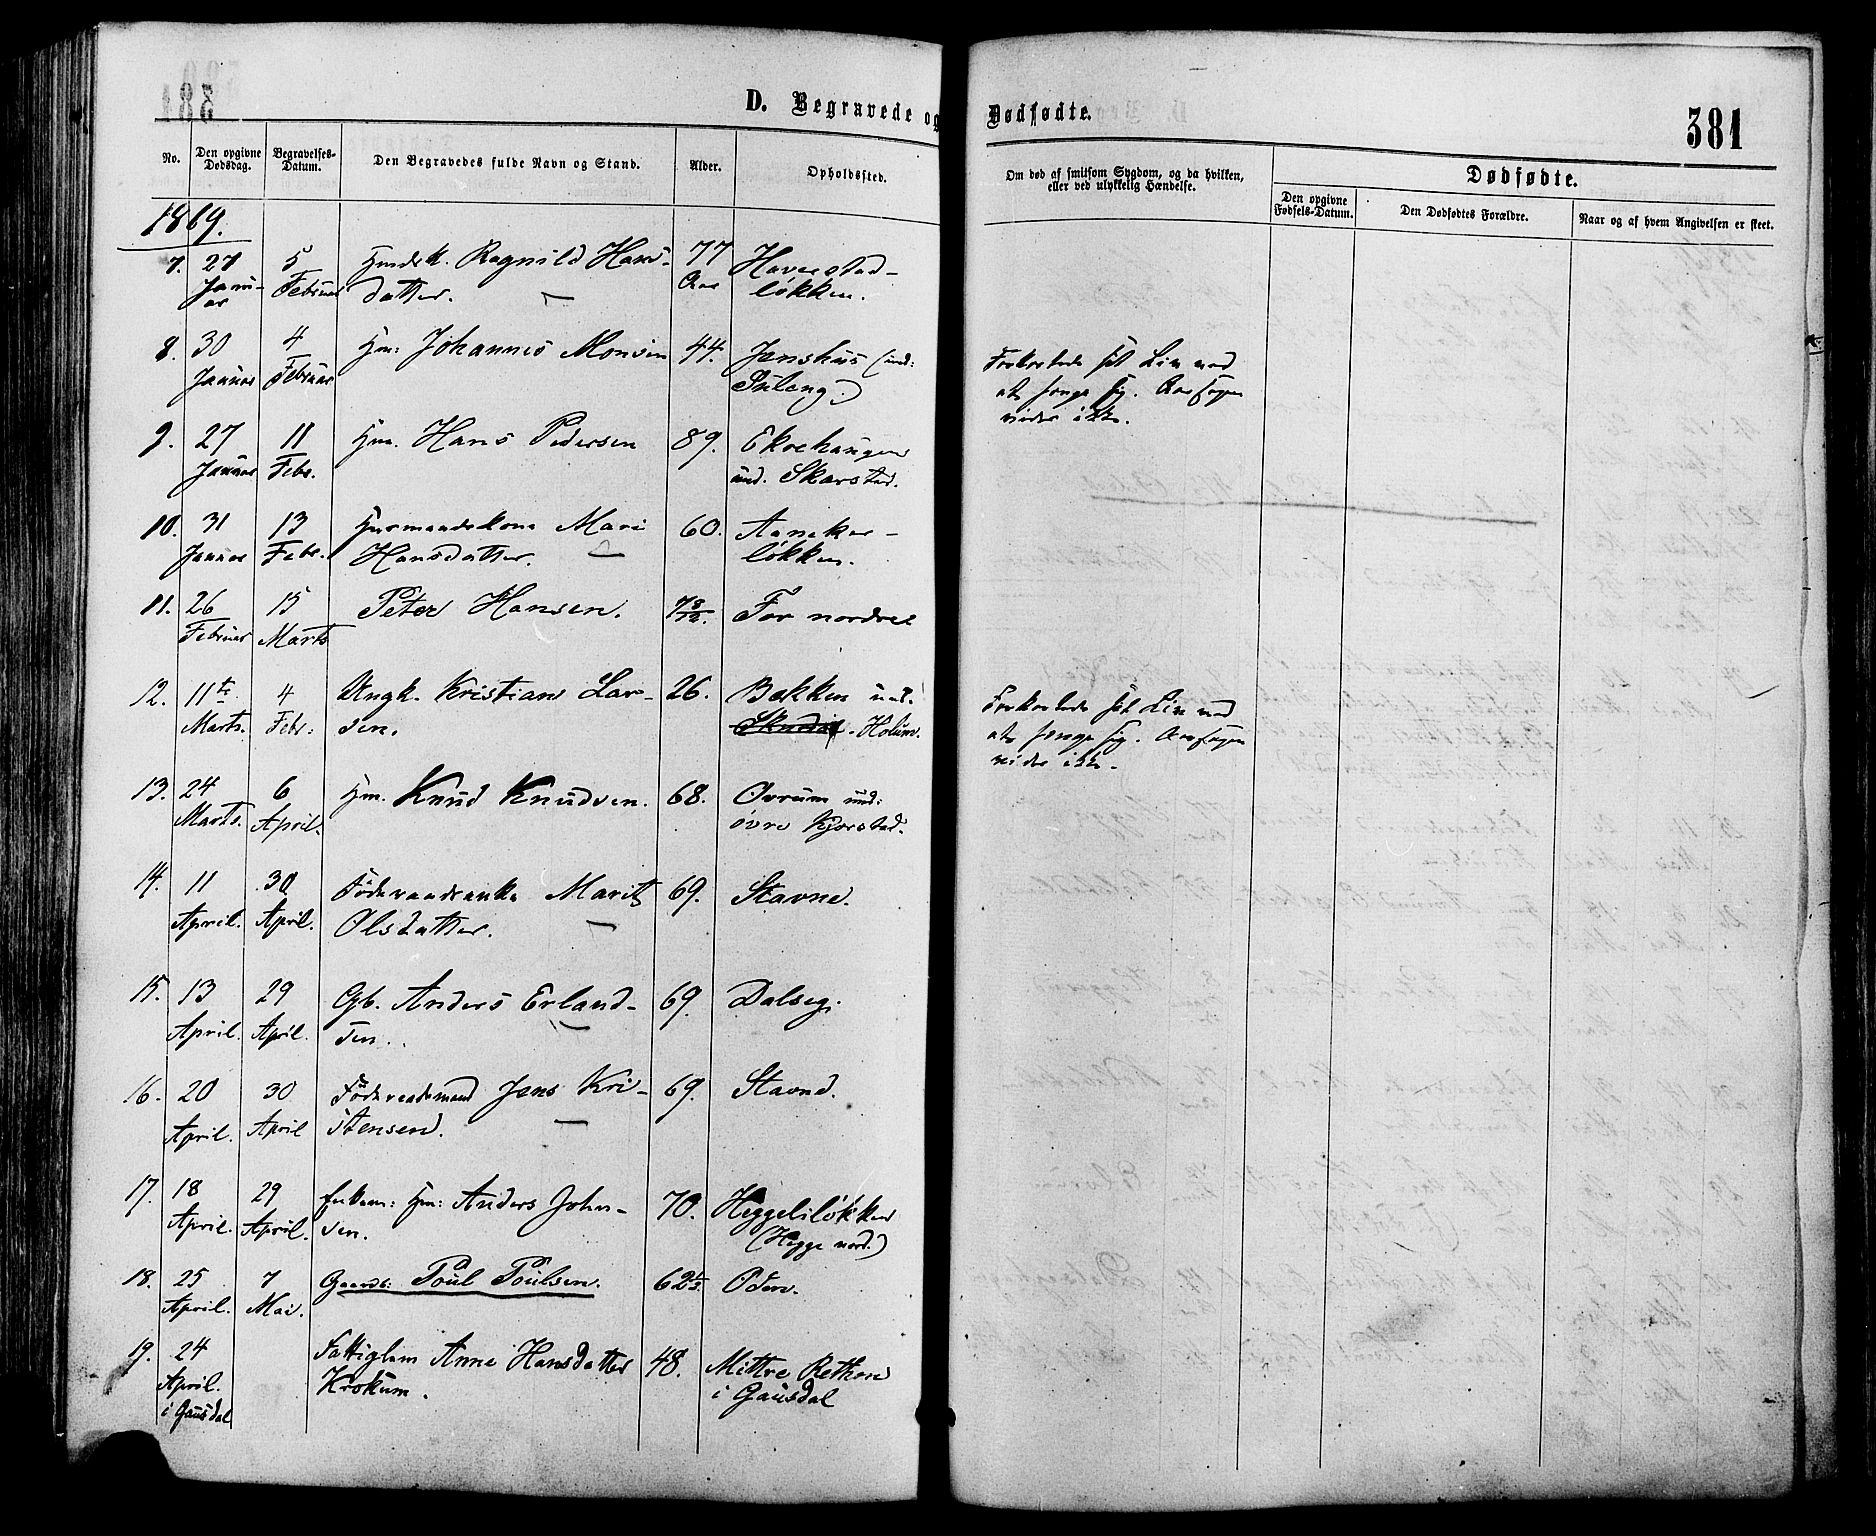 D. Begravede og Dødfødte.
381
No.
Den opgivne Dødsdag.
Begravelses-Datum.
Den Begravedes fulde Navn og Stand.
Alder.
Opholdssted.
Om død af smitsom Sygdom, og da hvilken, eller ved ulykkelig Hændelse.
Dødfødte.
Den opgivne Fødsels-Datum.
Den Dødfødtes Forældre.
Naar og af hvem Angivelsen er skeet.
1869.
7. 27 5 Ragnild Hans- 77
Januar Februar datter. Aar løkken.
8. 30 4 Hm: Johannes Monsen 44. Jenshus (und:
Januar Februar
Forkortede sit Liv ved
at henge sig. Aarsagen
vides ikke.
9. 27 11 Hm. Hans Pedersen 89. Ekrehaugen
Januar Febr. und. Skarstad.
10. 31 13 Husmandskone Mari 60.
Januar Febr. Hansdatter. løkken.
11. 26 15 Peter Hansen. 7 8/12. For nordre
Februar Marts
12. 11te 4 Ungk. Kristian Lar- 26. Bakken und.
Marts. Febr: sen. Holum.
Forkortede sit Liv ved
at henge sig. Aarsagen
vides ikke.
13. 24 6 Hm. Knud Knudsen. 68. Ovrum und:
Marts. April. øvre Kjorstad.
14. 11 30 Føderaadsenke Marit 69. Stavne.
April. April. Olsdatter.
15. 13 29 Gb. Anders Erland- 69. Dalseg.
April. April. sen.
16. 20 30 Føderaadsmand Jens Kri- 69. Stavne.
April. April stensen.
17. 18 29 Enkem: Hm: Anders John- 70. Heggeliløkken
April. April. sen. (Hegge nord.)
18. 25 7 Gaardb: Poul Poulsen. 62 Oden.
April. Mai.
19. 24 Fattiglem Anne Hansdatter 48. Mittre
April. Krokum. i Gausdal
i Gausdal